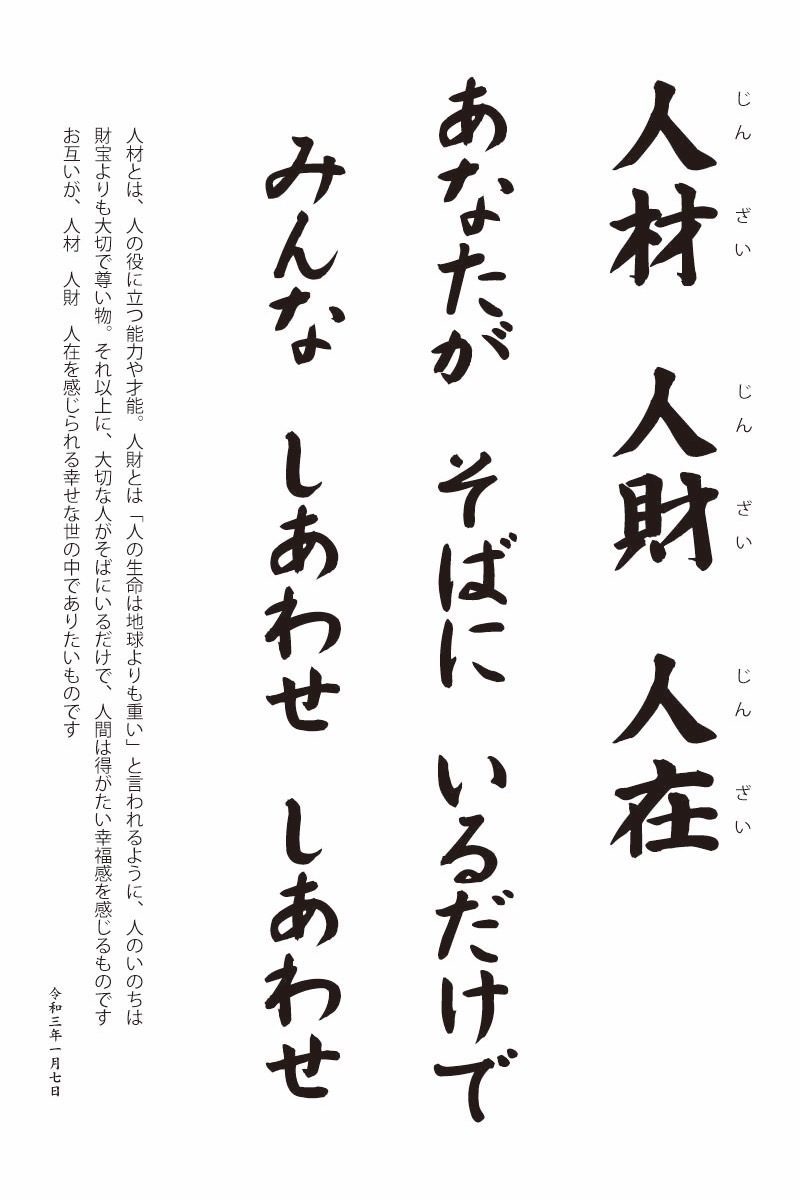 じんざい じんざい じんざい
人材 人財 人在
あなたが そばに いるだけで
みんな しあわせ しあわせ
人材とは、人の役に立つ能力や才能。人財とは「人の生命は地球よりも重い」と言われるように、人のいのちは
財宝よりも大切で尊い物。それ以上に、大切な人がそばにいるだけで、人間は得がたい幸福感を感じるものです
お互いが、人材 人財 人在を感じられる幸せな世の中でありたいものです
令和三年一月七日